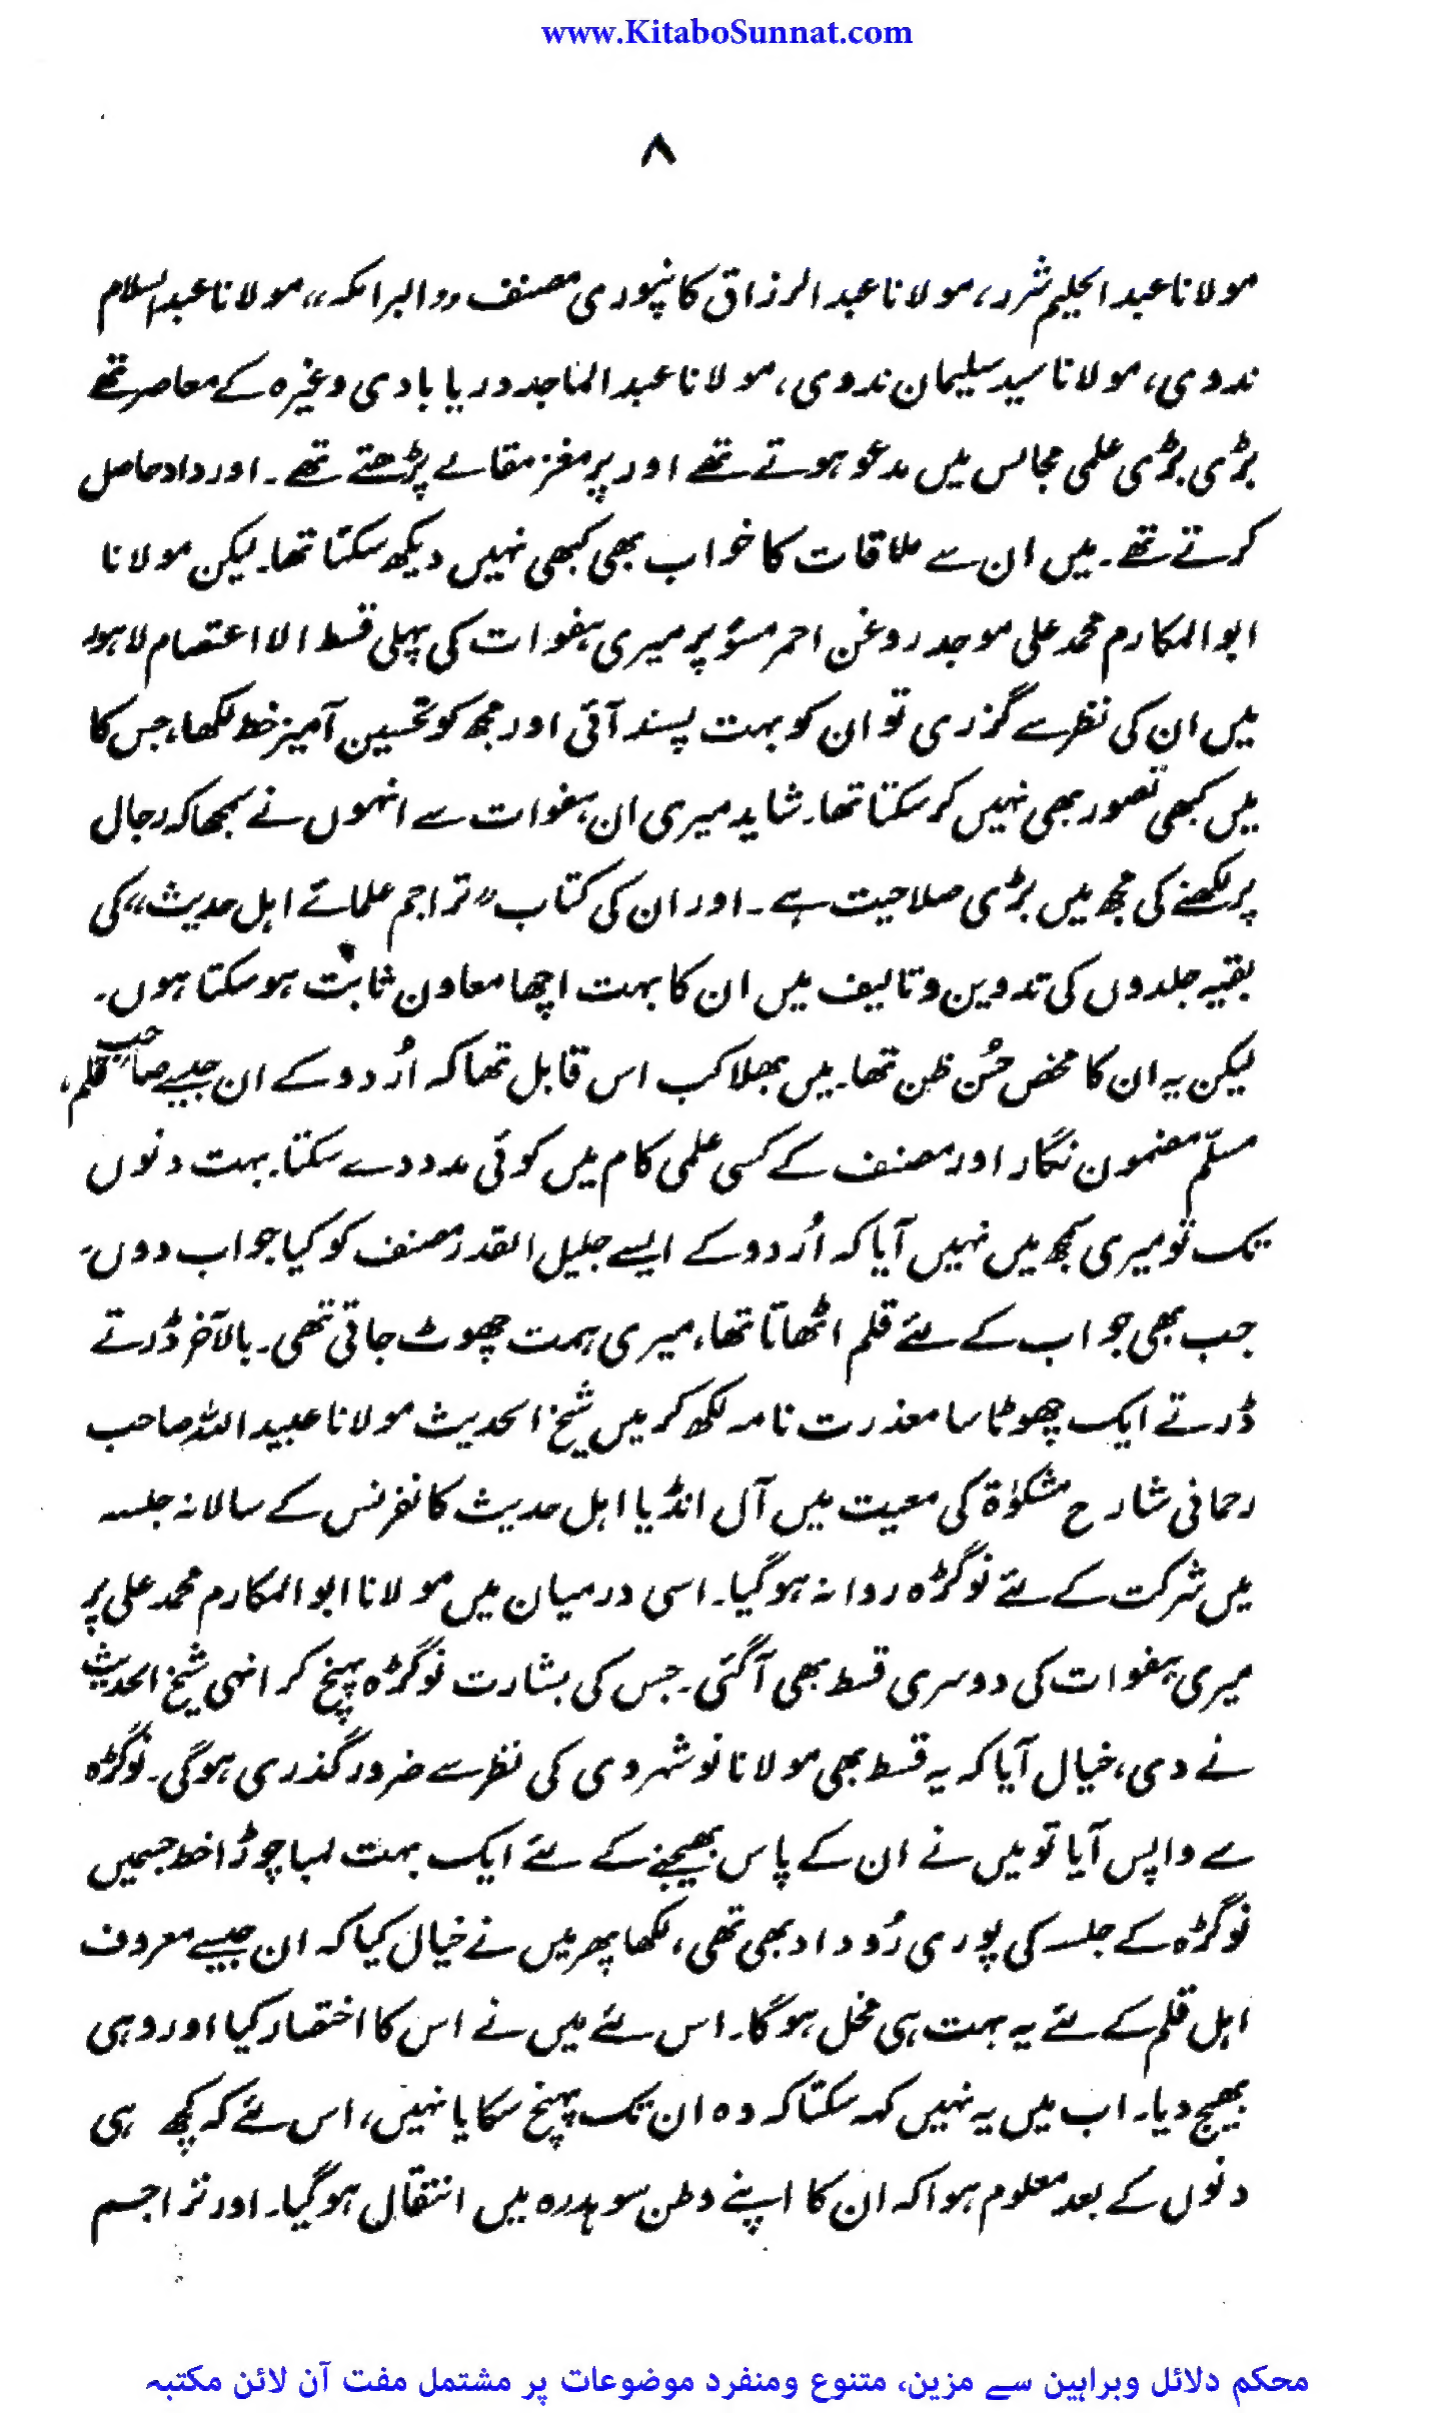 www.KitaboSunnat.com
۸
مولانا عبدالحلیم شرر، مولانا عبدالرزاق کانپوری مصنف ،،البرامکہ،، مولانا عبدالسلام
ندوی، مولانا سید سلیمان ندوی، مولانا عبدالماجد دریابادی وغیرہ کے معاصر تھے
بڑی بڑی علمی مجالس میں مدعو ہوتے تھے اور پر مغز مقالے پڑھتے تھے۔ اور داد حاصل
کرتے تھے۔ میں ان سے ملاقات کا خواب بھی کبھی نہیں دیکھ سکتا تھا۔ لیکن مولانا
ابوالمکارم محمد علی موجد روغن احمر مئو پر میری ہفوات کی پہلی قسط الاعتصام لاہور
میں ان کی نظر سے گزری تو ان کو بہت پسند آئی اور مجھ کو تحسین آمیز خط لکھا، جس کا
میں کبھی تصور بھی نہیں کر سکتا تھا۔ شاید میری ان ہفوات سے انہوں نے سمجھا کہ رجال
پر لکھنے کی مجھ میں بڑی صلاحیت ہے۔ اور ان کی کتاب ״تراجم علمائے اہل حدیث،، کی
بقیہ جلدوں کی تدوین و تالیف میں ان کا بہت اچھا معاون ثابت ہو سکتا ہوں۔
لیکن یہ ان کا محض حُسن ظن تھا۔ میں بھلا کب اس قابل تھا کہ اُردو کے ان جیسے صاحب قلم،
مسلّم مضمون نگار اور مصنف کے کسی علمی کام میں کوئی مدد دے سکتا۔ بہت دنوں
تک تو میری سمجھ میں نہیں آیا کہ اُردو کے ایسے جلیل القدر مصنف کو کیا جواب دوں۔
جب بھی جواب کے لئے قلم اٹھاتا تھا، میری ہمت چھوٹ جاتی تھی۔ بالآخر ڈرتے
ڈرتے ایک چھوٹا سا معذرت نامہ لکھ کر میں شیخ الحدیث مولانا عبید اللہ صاحب
رحمانی شارح مشکوٰۃ کی معیت میں آل انڈیا اہل حدیث کانفرنس کے سالانہ جلسہ
میں شرکت کے لئے نوگڑہ روانہ ہو گیا۔ اسی درمیان میں مولانا ابوالمکارم محمد علی پر
میری ہفوات کی دوسری قسط بھی آ گئی۔ جس کی بشارت نوگڑہ پہنچ کر انہی شیخ الحدیث
نے دی، خیال آیا کہ یہ قسط بھی مولانا نوشہروی کی نظر سے ضرور گذری ہوگی۔ نوگڑہ
سے واپس آیا تو میں نے ان کے پاس بھیجنے کے لئے ایک بہت لمبا چوڑا خط جسمیں
نوگڑہ کے جلسہ کی پوری رُوداد بھی تھی، لکھا پھر میں نے خیال کیا کہ ان جیسے معروف
اہل قلم کے لئے یہ بہت ہی مخل ہوگا۔ اس لئے میں نے اس کا اختصار کیا اور وہی
بھیج دیا۔ اب میں یہ نہیں کہہ سکتا کہ وہ ان تک پہنچ سکا یا نہیں، اس لئے کہ کچھ ہی
دنوں کے بعد معلوم ہوا کہ ان کا اپنے وطن سوہدرہ میں انتقال ہو گیا۔ اور تراجم
محکم دلائل وبراہین سے مزین، متنوع ومنفرد موضوعات پر مشتمل مفت آن لائن مکتبہ